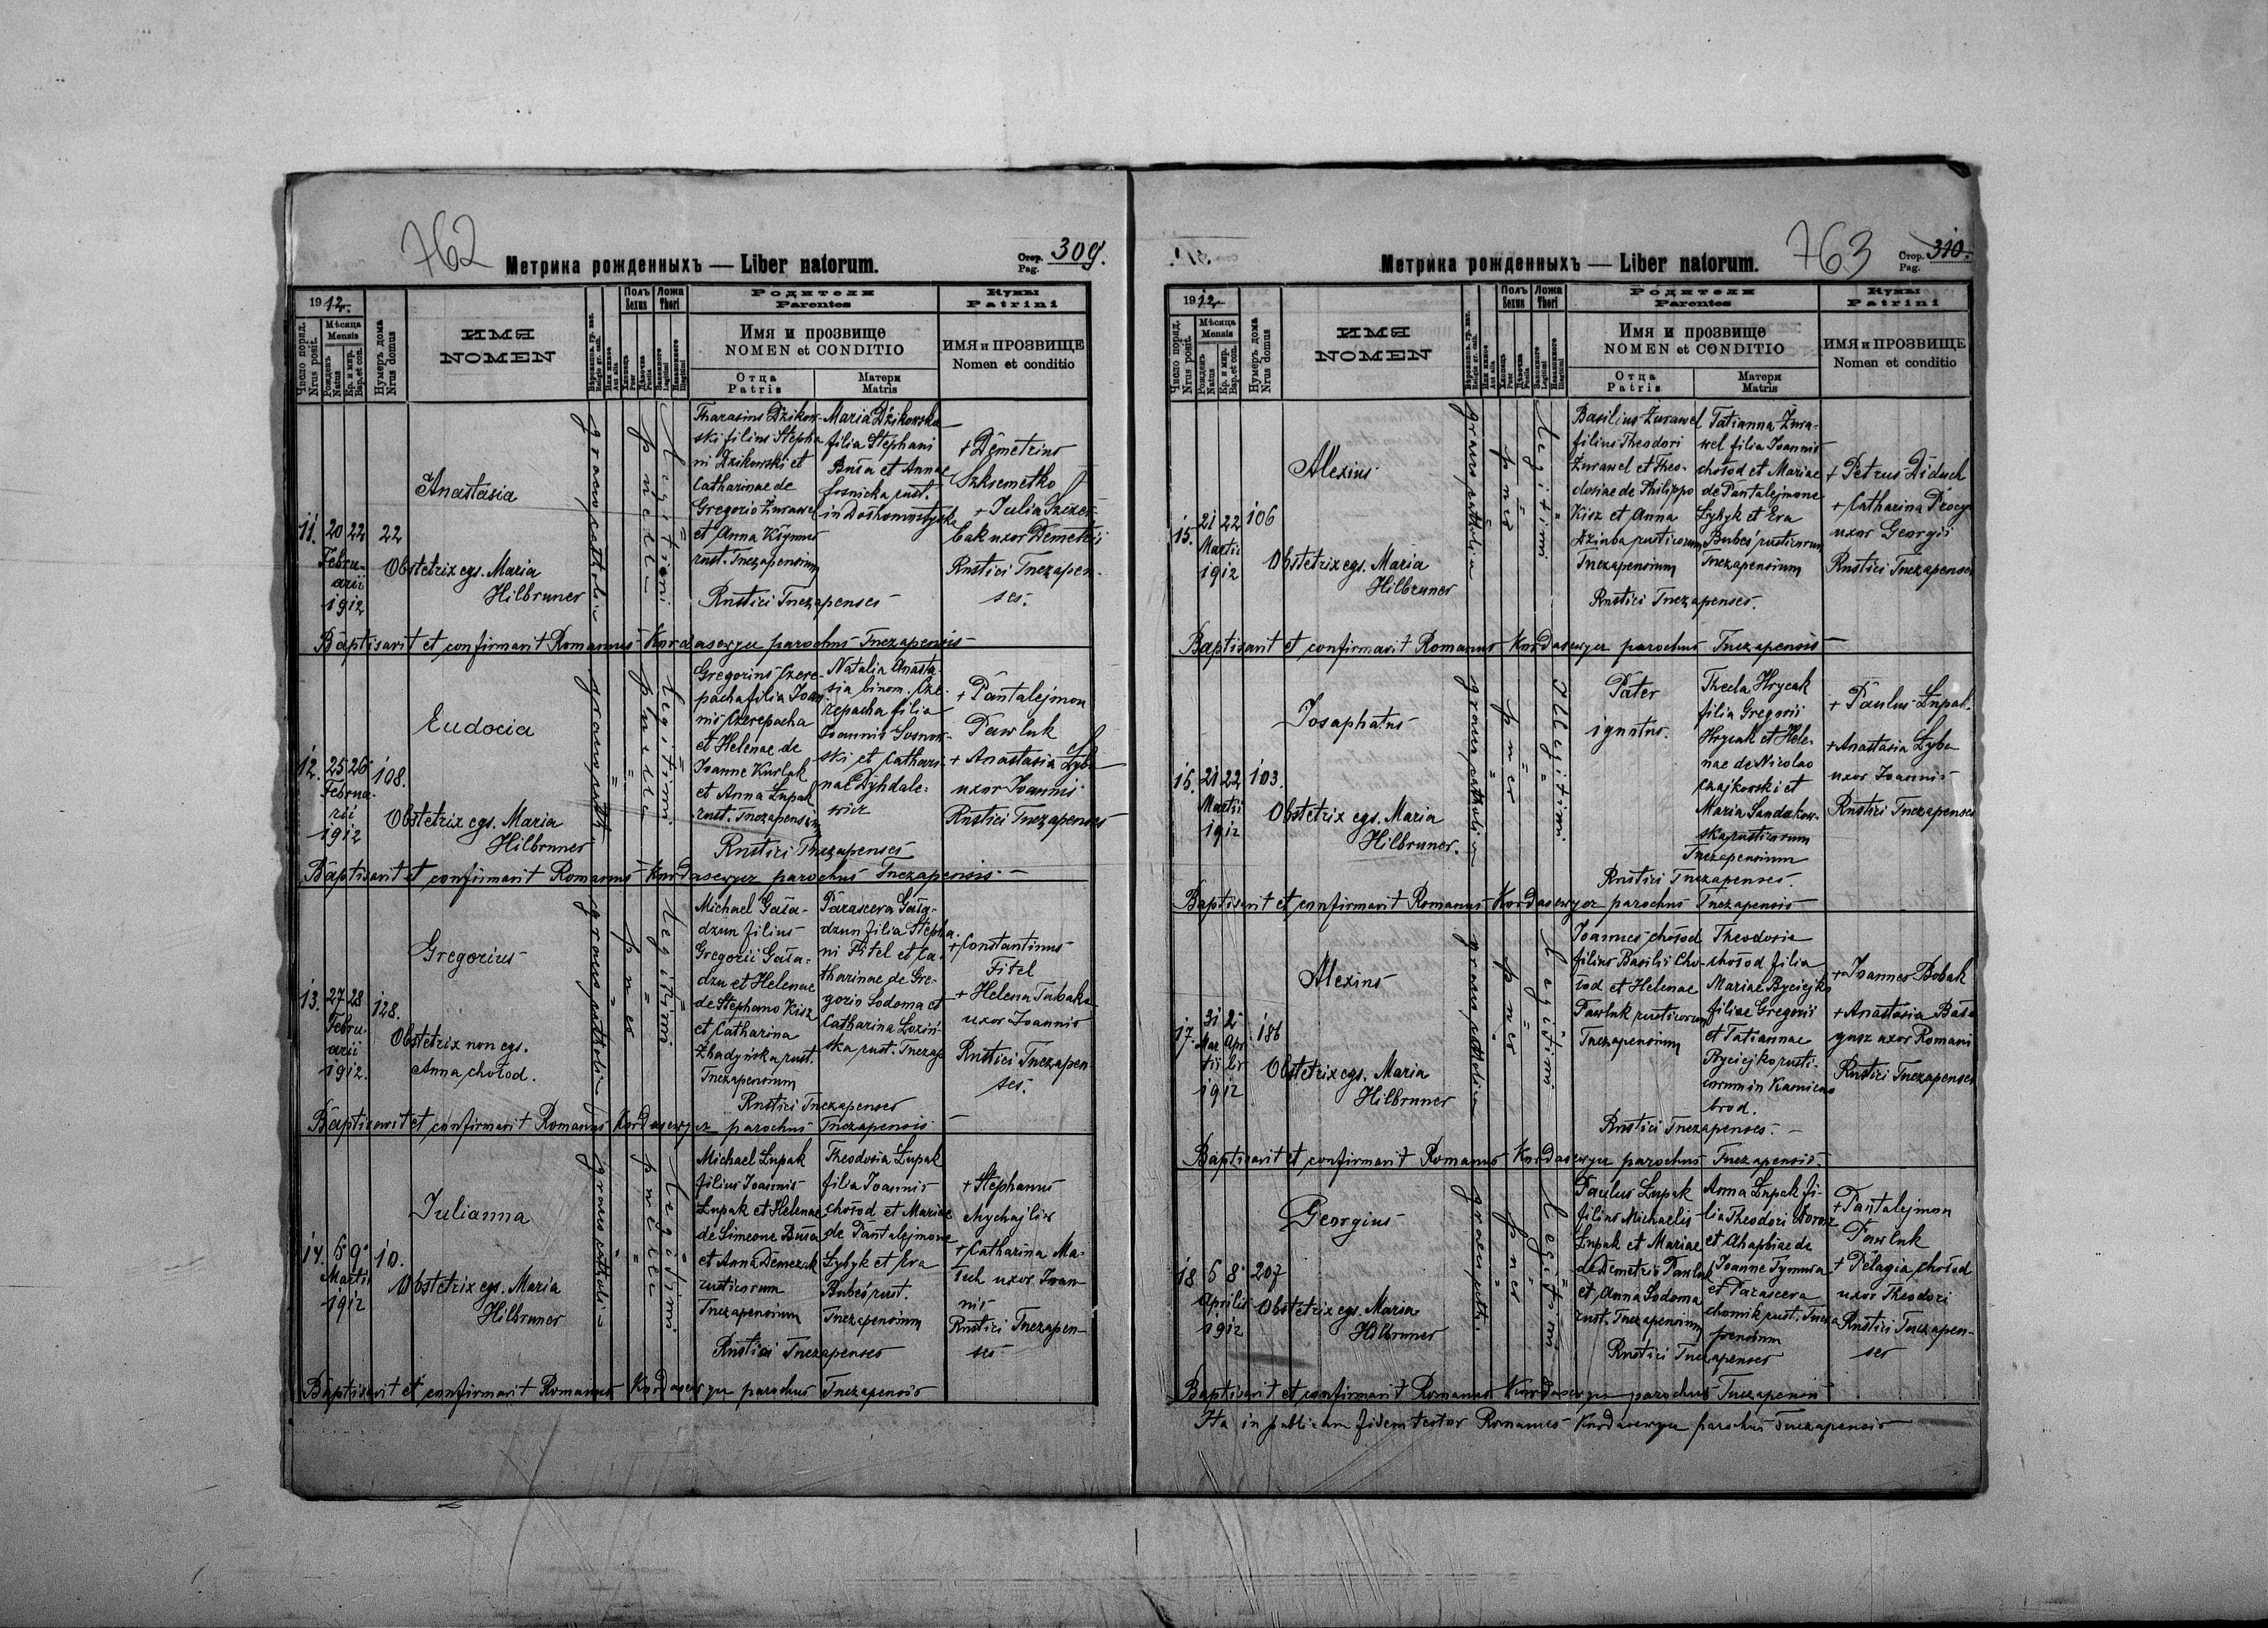 762
Метрика рожденныхъ — Liber natorum.
Стор. Pag. 309.
1912
Число поряд. Nrus posit.
Мѣсяца Mensis
Рожденъ Natus
Кр. и мир. Bap. et con.
Нумеръ дома Nrus domus
ИМЯ
NOMEN
Полъ Sexus
Ложа Thori
Родители
Parentes
Имя и прозвище
NOMEN et CONDITIO
Отца Patris
Матери Matris
Кумы
Patrini
ИМЯ и ПРОЗВИЩЕ
Nomen et conditio
11.
20 22
Febru-
arii
1912
22
Anastasia
Obstetrix egs. Maria
Hilbruner
graeco catholica
puella
Legitimi
Tharasius Dzikow-
ski filius Stepha
ni Dzikowski et
Catharinae de
Gregorio Żurawel
et Anna
rust. Tuczapensium
Maria Dzikowska
filia Stephani
Busa et Annae
Sosnicka rust.
in Dobromostyska
Rustici Tuczapenses
+ Demetrius
+ Julia
uxor Demetrii
Rustici Tuczapen-
ses.
Baptisavit et confirmavit Romanus Kordasewycz parochus Tuczapensis
12.
25 26
Februa-
rii
1912
108.
Eudocia
Obstetrix egs. Maria
Hilbruner
graeco cath
puella
Legitimi
Gregorius Czere-
pacha filia Joan
nis Czerepacha
et Helenae de
Joanne Kurlak
et Anna Łupak
rust. Tuczapensium
Natalia Anasta-
sia binom. Cze-
repacha filia
Joannis Sosnow-
ski et Cathari-
nae Dyhdale-
wicz
Rustici Tuczapenses
+ Pantalejmon
Pawluk
+ Anastasia Łyba
uxor Joannis
Rustici Tuczapenses
Baptisavit et confirmavit Romanus Kordasewycz parochus Tuczapensis
13.
27 28
Febru-
arii
1912.
128.
Gregorius
Obstetrix non egs.
Anna Chołod.
graeco catholica
puer
Legitimi
Michael Gała-
dzun filius
Gregorii Gała-
dzu et Helenae
de Stephano Kisz
et Catharina
Żbadyńska rust.
Tuczapensium
Parasceva Gała-
dzun filia Stepha.
ni Fitel et Ca-
tharinae de Gre-
gorio Sodoma et
Catharina Łoziń
ska rust. Tuczap
Rustici Tuczapenses
+ Constantinus
Fitel
+ Helena Tabaka
uxor Joannis
Rustici Tuczapen
ses.
Baptisavit et confirmavit Romanus Kordasewycz parochus Tuczapensis
14.
5 9
Martii
1912
10.
Julianna
Obstetrix egs. Maria
Hilbruner
graeco catholi
puella
Legitimi
Michael Łupak
filius Joannis
Łupak et Helenae
de Simeone Busa
et Anna Demczuk
rusticorum
Tuczapensium
Theodosia Łupak
filia Joannis
Chołod et Mariae
de Pantalejmone
Łybyk et Eva
Bubeś rust.
Tuczapensium
Rustici Tuczapenses
+ Stephanus
Mychajliw
+ Catharina Ma-
uxor Joan-
nis
Rustici Tuczapen-
ses
Baptisavit et confirmavit Romanus Kordasewycz parochus Tuczapensis
763
Метрика рожденныхъ — Liber natorum.
Стор. Pag. 310.
1912
Число поряд. Nrus posit.
Мѣсяца Mensis
Рожденъ Natus
Кр. и мир. Bap. et con.
Нумеръ дома Nrus domus
ИМЯ
NOMEN
Полъ Sexus
Ложа Thori
Родители
Parentes
Имя и прозвище
NOMEN et CONDITIO
Отца Patris
Матери Matris
Кумы
Patrini
ИМЯ и ПРОЗВИЩЕ
Nomen et conditio
15.
21 22
Martii
1912
106
Alexius
Obstetrix egs. Maria
Hilbruner
graeco catholica
puer
Legitimi
Basilius Żurawel
filius Theodori
Żurawel et Theo-
dosiae de Philippo
Kisz et Anna
Dziuba rusticorum
Tuczapensium
Tatianna Żura-
wel filia Joannis
Chołod et Mariae
de Pantalejmone
Łybyk et Eva
Bubeś rusticorum
Tuczapensium
Rustici Tuczapenses.
+ Petrus Diduch
+ Catharina
uxor Georgii
Rustici Tuczapenses
Baptisavit et confirmavit Romanus Kordasewycz parochus Tuczapensis
15.
21 22
Martii
1912
103.
Josaphatus
Obstetrix egs. Maria
Hilbruner.
graeco catholica
puer
Illegitimi
Pater
ignotus.
Thecla Hrycak
filia Gregorii
Hrycak et Hele-
nae de Nicolao
Czajkowski et
Maria Sandakow-
ska rusticorum
Tuczapensium
Rustici Tuczapenses.
+ Paulus Łupak.
+ Anastasia Łyba
uxor Joannis
Rustici Tuczapenses
Baptisavit et confirmavit Romanus Kordasewycz parochus Tuczapensis
17.
31 2
Mar Apr
tii lis
1912
186
Alexius
Obstetrix egs. Maria
Hilbruner
graeco catholica
puer
Legitimi
Joannes Chołod
filius Basilii Cho-
łod et Helenae
Pawluk rusticorum
Tuczapensium
Theodosia
Chołod filia
Mariae Byciejko
filiae Gregorii
et Tatiannae
Byciejko rusti-
corum in Kamieno
brod.
Rustici Tuczapenses.
+ Joannes Bobak
+ Anastasia Bała
gusz uxor Romani
Rustici Tuczapenses
Baptisavit et confirmavit Romanus Kordasewycz parochus Tuczapensis.
18
5 8
Aprilis
1912
207
Georgius
Obstetrix egs. Maria
Hilbruner
graeco cath.
puer
Legitimi
Paulus Łupak
filius Michaelis
Łupak et Mariae
de Demetrio Pawluk
et Anna Sodoma
rust. Tuczapensium
Anna Łupak fi-
lia Theodori Moroz
et Ahaphiae de
Joanne Tymura
et Parasceva
Chomik rust. Tucza
pensium
Rustici Tuczapenses
+ Pantalejmon
Pawluk
+ Pelagia Chołod
uxor Theodori
Rustici Tuczapen-
ses
Baptisavit et confirmavit Romanus Kordasewycz parochus Tuczapensis
Ita in publicam fidem testor Romanus Kordasewycz parochus Tuczapensis